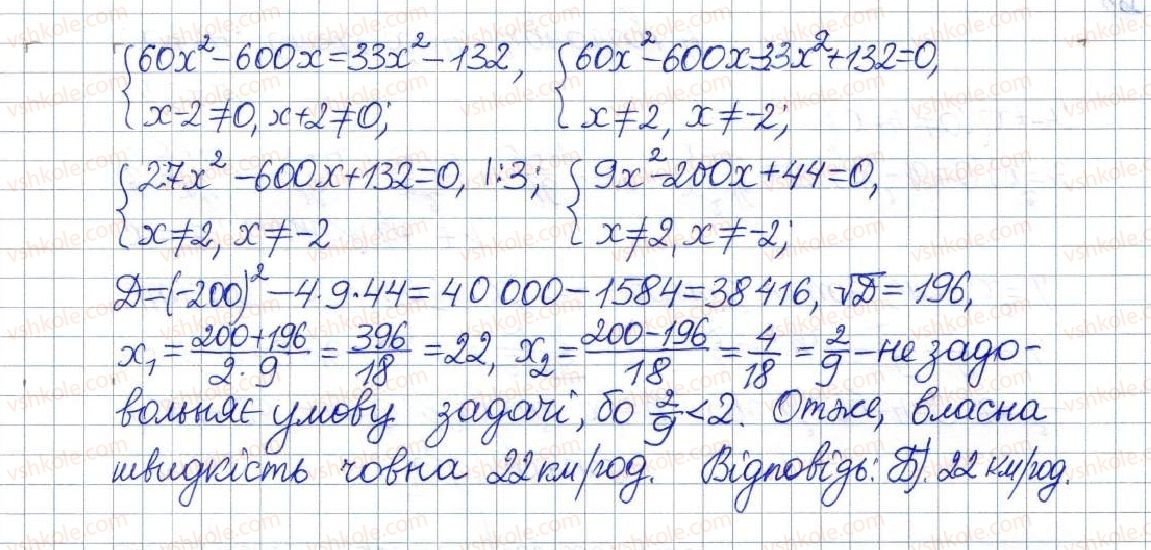 {60x² − 600x = 33x² − 132, {60x² − 600x − 33x² + 132 = 0,
x − 2 ≠ 0, x + 2 ≠ 0; x ≠ 2, x ≠ −2;
{27x² − 600x + 132 = 0, |:3; {9x² − 200x + 44 = 0,
x ≠ 2, x ≠ −2 x ≠ 2, x ≠ −2;
Д = (−200)² − 4·9·44 = 40 000 − 1584 = 38416, √Д = 196,
x₁ = (200+196)/(2·9) = 396/18 = 22, x₂ = (200−196)/18 = 4/18 = 2/9 – не задо-
вольняє умову задачі, бо 2/9 < 2. Отже, власна
швидкість човна 22 км/год. Відповідь: Б). 22 км/год.